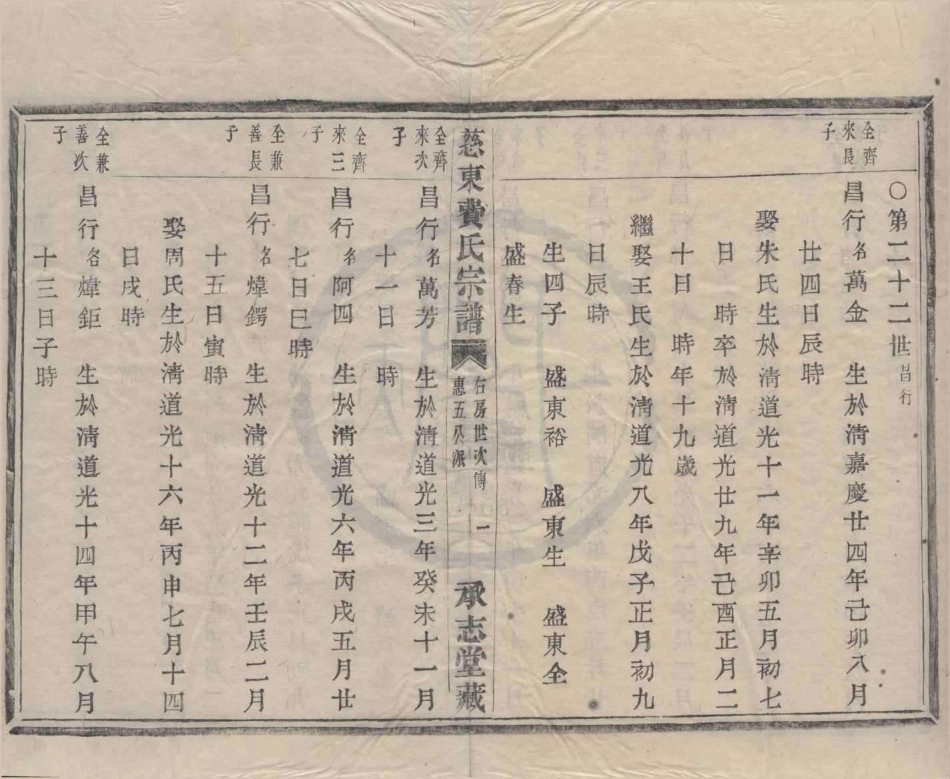 〇第二十二世昌行
仝齊
來長
子
昌行名萬金　生於淸嘉慶廿四年己卯八月
廿四日辰時
娶朱氏生於淸道光十一年辛卯五月初七
日　時卒於淸道光廿九年己酉正月二
十日　時年十九歲
繼娶王氏生於淸道光八年戊子正月初九
日辰時
生四子　盛東裕　盛東生　盛東全
盛春生
慈東費氏宗譜
右房世次傳
惠五公派
一
承志堂藏
仝齊
來次
子
昌行名萬芳　生於淸道光三年癸未十一月
十一日　時
仝齊
來三
子
昌行名阿四　生於淸道光六年丙戌五月廿
七日巳時
仝兼
善長
子
昌行名煒鍔　生於淸道光十二年壬辰二月
十五日寅時
娶周氏生於淸道光十六年丙申七月十四
日戌時
仝兼
善次
子
昌行名煒鉅　生於淸道光十四年甲午八月
十三日子時